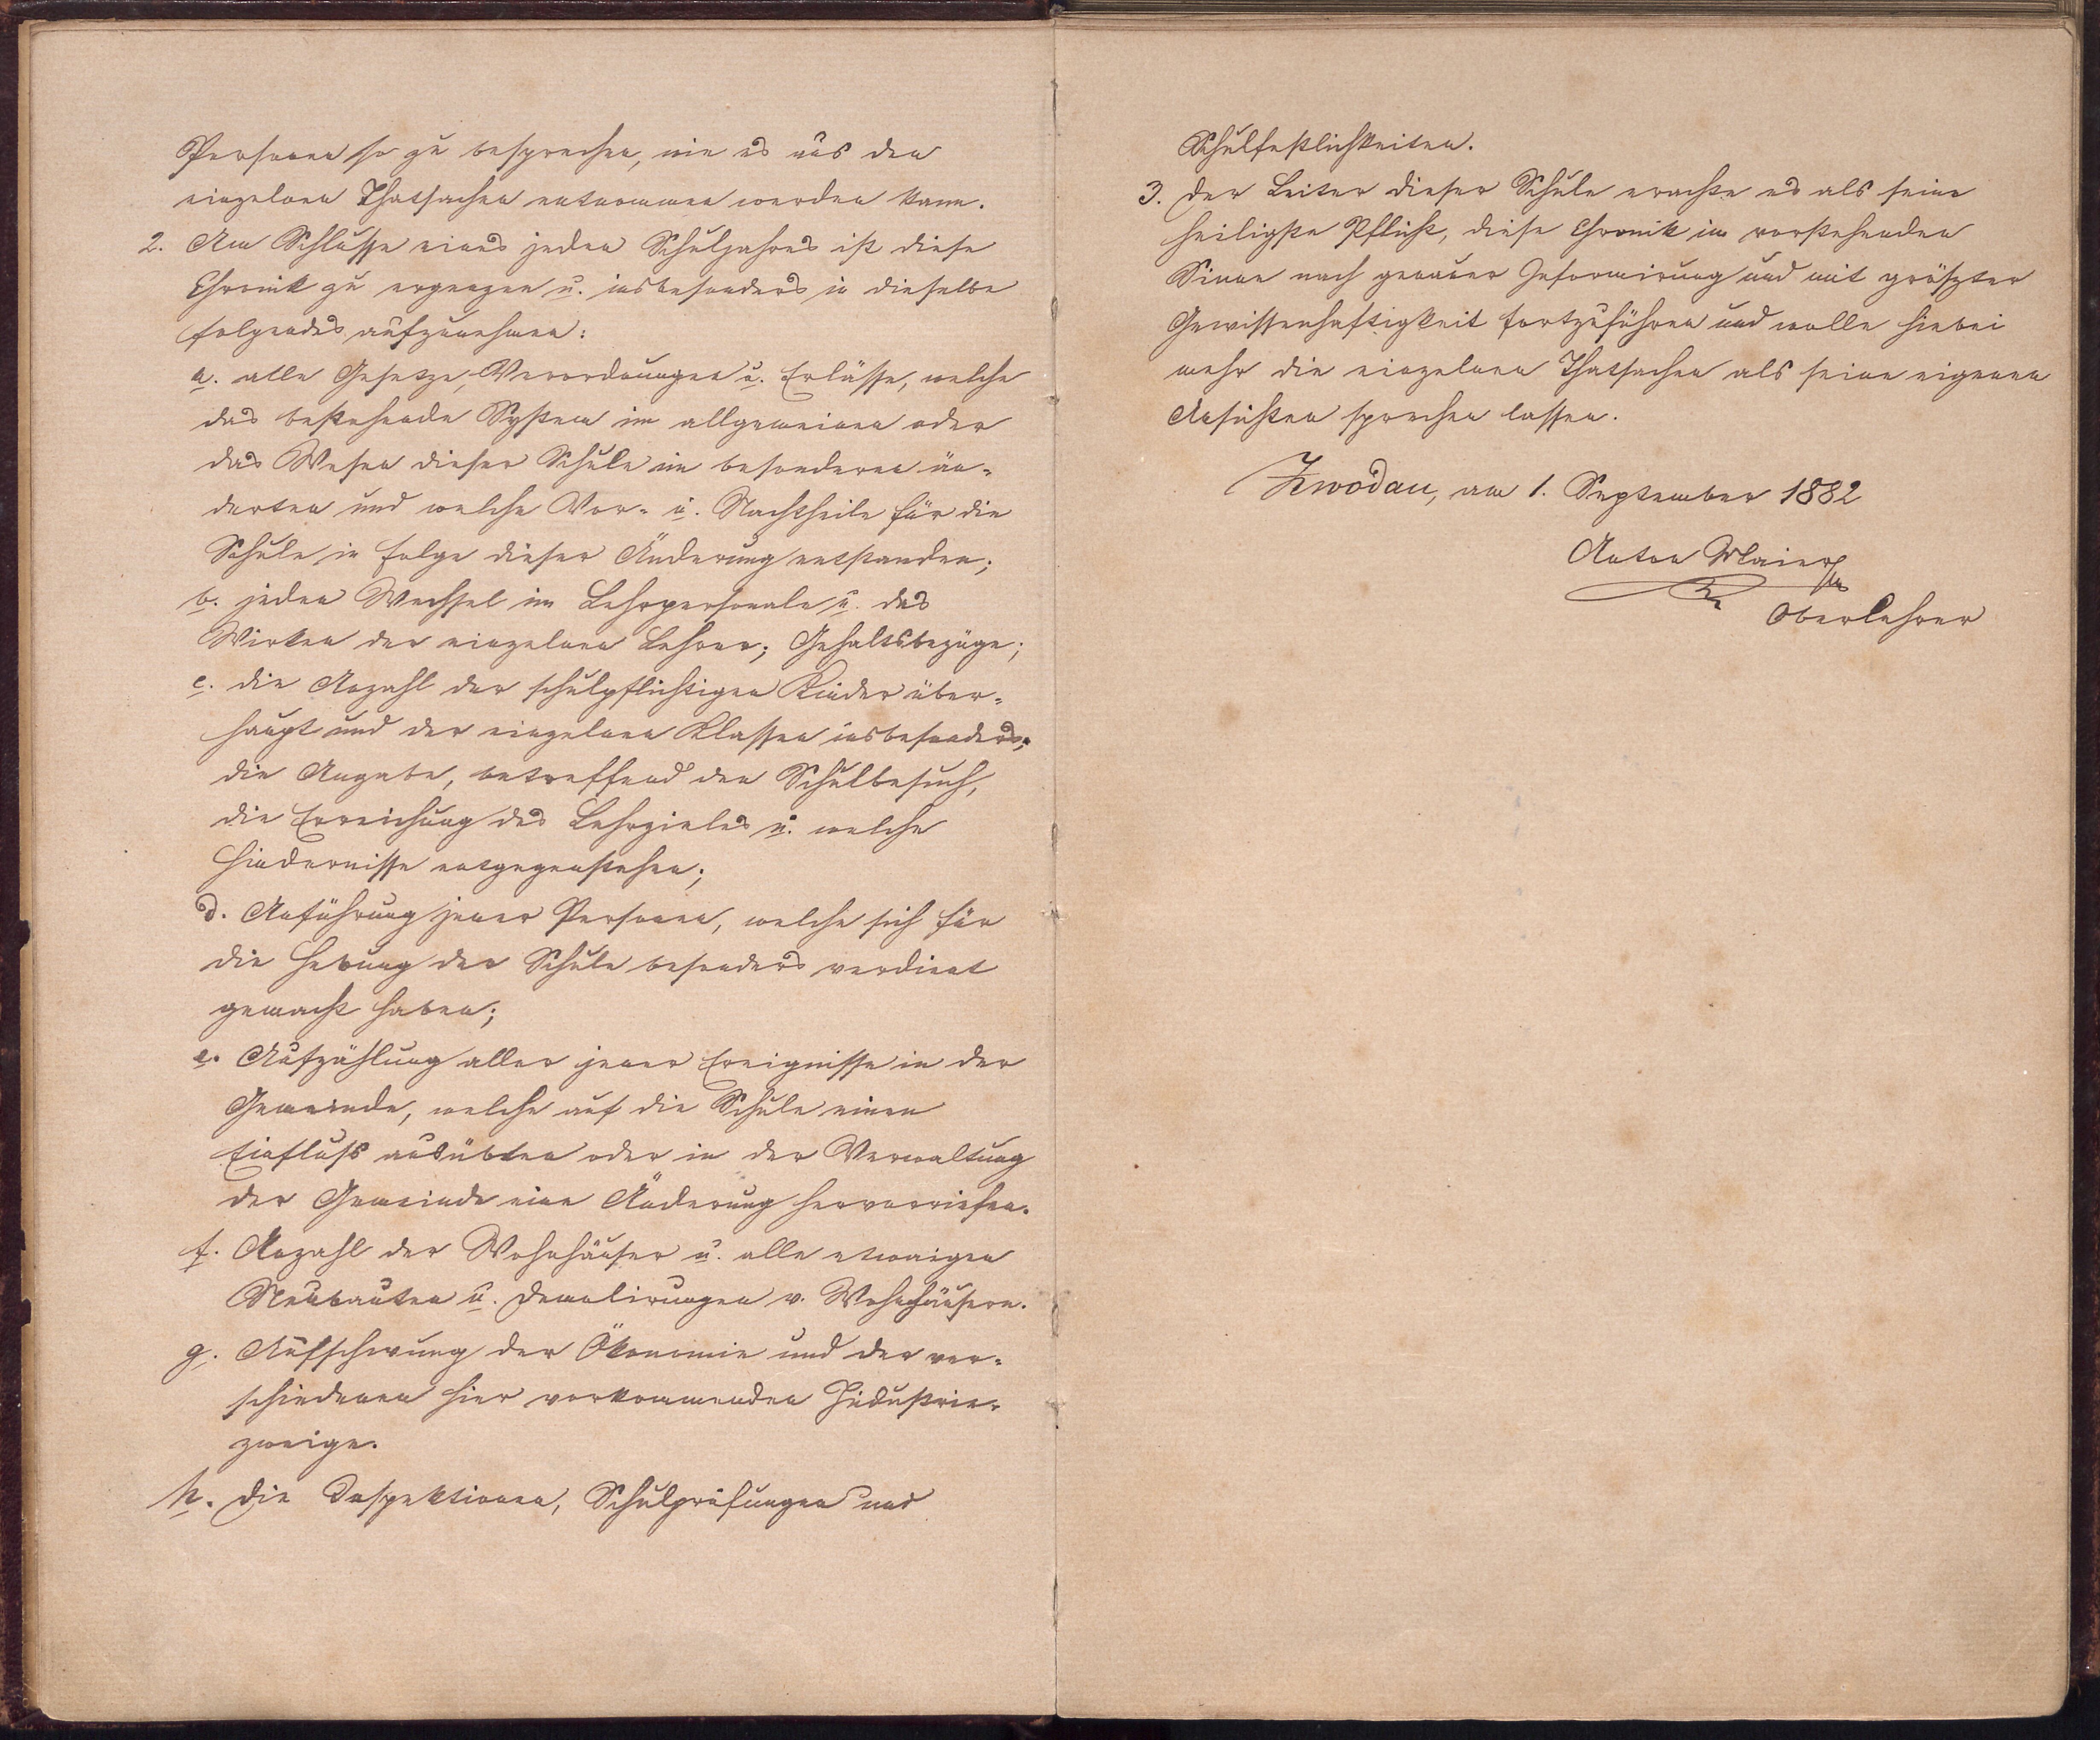 Personen so zu besprechen, wie es aus den
einzelnen Thatsachen entnommen werden kann.
2. Am Schlusse eines jeden Schuljahres ist diese
Chronik zu ergenzen u. insbesonders in dieselbe
folgendes aufzunehmen:
a. alle Gesetze, Verordnungen u. Erlässe, welche
das bestehende System im allgemeinen oder
das Wesen dieser Schule im besonderen än-
derten und welche Vor- u. Nachtheile für die
Schule in Folge dieser Änderung entstanden;
b. jeden Wechsel im Lehrpersonale u. das
Wirken der einzelnen Lehrer; Gehaltsbezüge;
c. die Anzahl der schulpflichtigen Kinder über-
haupt und der einzelnen Klassen insbesonders;
die Angabe, betreffend den Schulbesuch,
die Erreichung des Lehrzieles u. welche
Hindernisse entgegenstehen;
d. Anführung jener Personen, welche sich für
die Hebung der Schule besonders verdient
gemacht haben;
e. Aufzählung aller jener Ereignisse in der
Gemeinde, welche auf die Schule einen
Einfluß ausübten oder in der Verwaltung
der Gemeinde eine Änderung hervorriefen.
f. Anzahl der Wohnhäuser u. alle etwaigen
Neubauten u. Demolirungen v. Wohnhäusern.
g. Aufschwung der Ökonomie und der ver-
schiedenen hier vorkommenden Industrie-
zweige.
h. Die Inspektionen, Schulprüfungen und
Schulfestlichkeiten.
3. Der Leiter dieser Schule erachte es als seine
heiligste Pflicht, diese Chronik im vorstehenden
Sinne nach genauer Informirung und mit gröszter
Gewissenhaftigkeit fortzuführen und wolle hiebei
mehr die einzelnen Thatsachen als seine eigenen
Ansichten sprechen lassen.
Zwodau, am 1. September 1882
Anton Maier
Oberlehrer